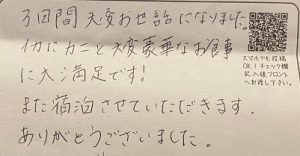 3日間大変お世話になりました。
イカにカニと大変豪華なお食事
に大満足です!
また宿泊させていただきます。
ありがとうございました。
スマホでも投稿
OK！チェック欄
記入後フロント
へお渡し下さい。